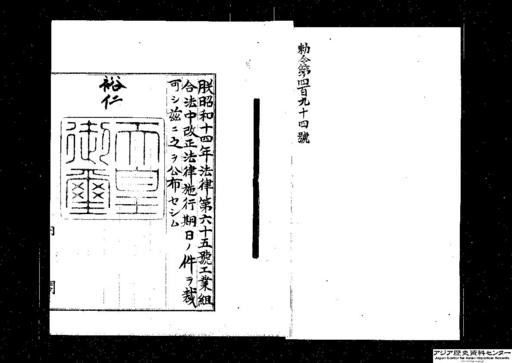 勅令第四百九十四號
朕昭和十四年法律第六十五號工業組
合法中改正法律施行期日ノ件ヲ裁
可シ茲ニ之ヲ公布セシム
裕仁
天皇
御璽
内
閣
アジア歴史資料センター
Japan Center for Asian Historical Records